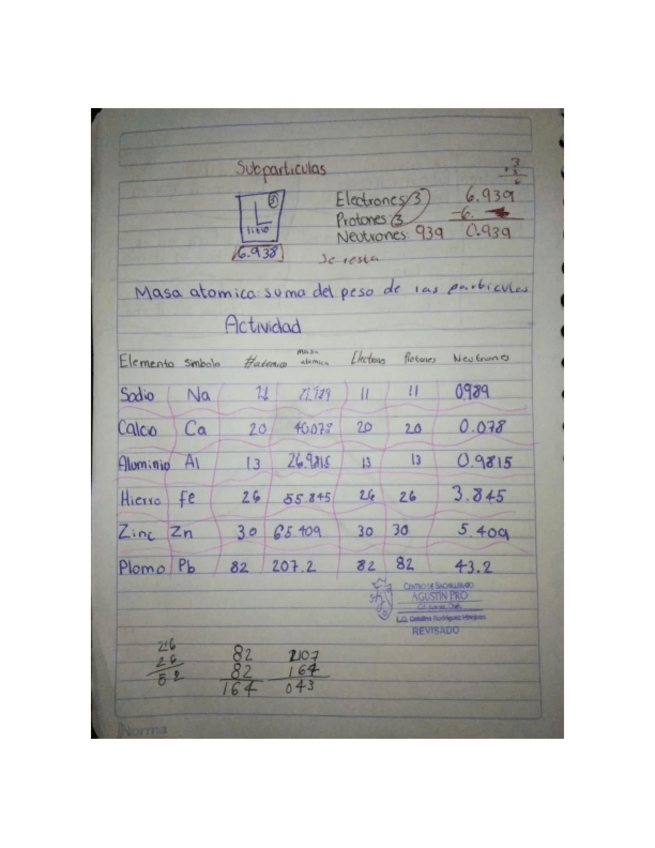 Subparticulas
3
L
litio
6.938
Electrones 3
Protones 3
Neutrones: 939
Se resta
3
6.939
-6.
0.939
Masa atomica: suma del peso de las particulas
Actividad
Elemento Simbolo #atomico masa atomica Electrones Protones Neutrones
Sodio Na 11 22.989 11 11 0.989
Calcio Ca 20 40.078 20 20 0.078
Aluminio Al 13 26.9815 13 13 0.9815
Hierro fe 26 55.845 26 26 3.845
Zinc Zn 30 65.409 30 30 5.409
Plomo Pb 82 207.2 82 82 43.2
CENTRO DE BACHILLERATO
AGUSTÍN PRO
L.Q. Catalina Rodríguez
REVISADO
26
26
52
82
82
164
207
164
043
Norma